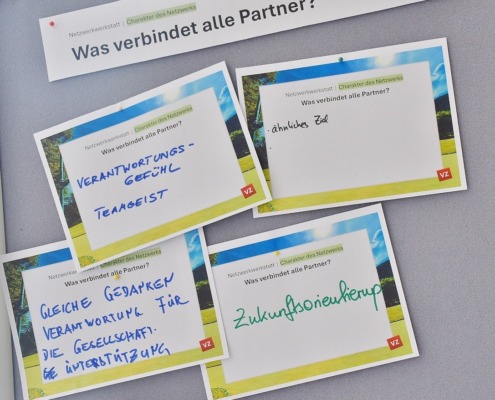 Netzwerkwerkstatt | Charakter des Netzwerks
Was verbindet alle Partner?
Netzwerkwerkstatt | Charakter des Netzwerks
Was verbindet alle Partner?
VERANTWORTUNGS-
GEFÜHL
TEAMGEIST
VZ
Netzwerkwerkstatt | Charakter des Netzwerks
Was verbindet alle Partner?
- ähnliches Ziel
-
VZ
Netzwerkwerkstatt | Charakter des Netzwerks
Was verbindet alle Partner?
GLEICHE GEDANKEN
VERANTWORTUNG FÜR
DIE GESELLSCHAFT.
UNTERSTÜTZUNG
VZ
Netzwerkwerkstatt | Charakter des Netzwerks
Was verbindet alle Partner?
Zukunftsorientierung
VZ